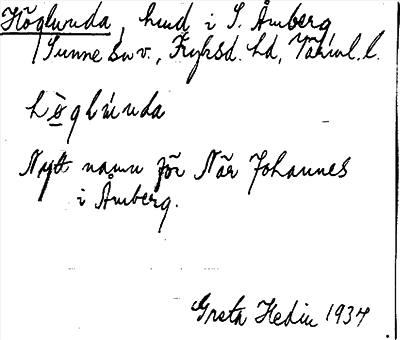 Höglunda, hmd i S. Åmberg
Sunne sn v., Fryksd. hd, Värml. l.
högluǹda
Nytt namn för När Johannes
i Åmberg.
Greta Hedin 1937